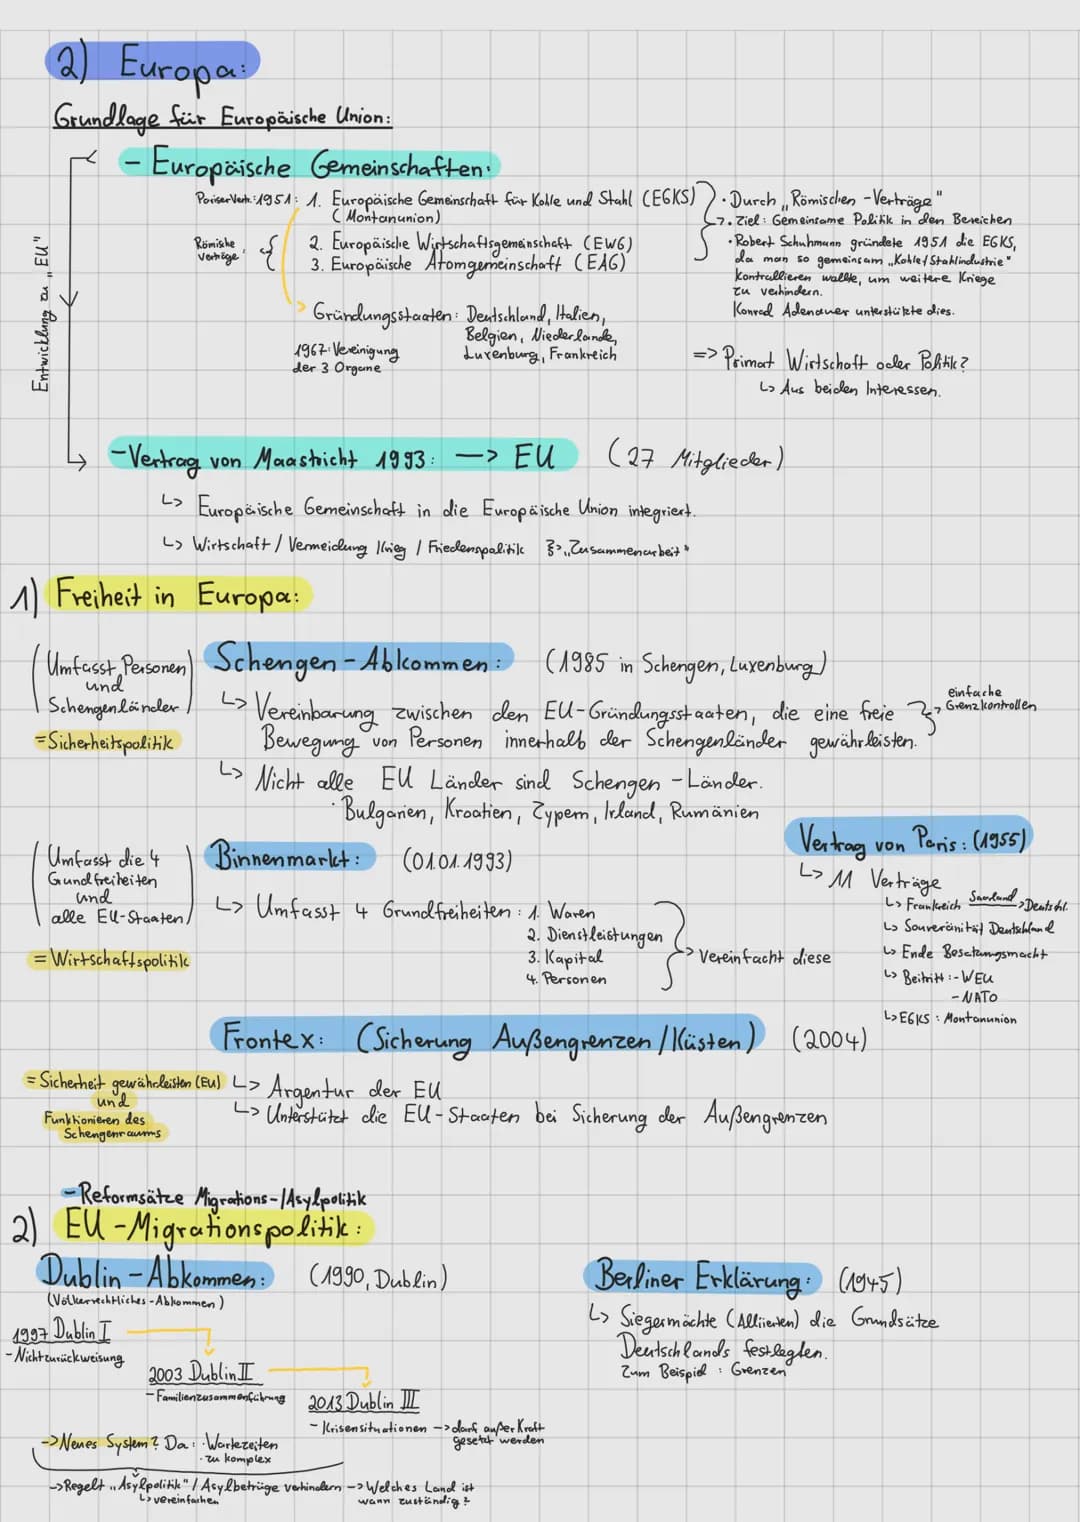 2) Europa:
Grundlage für Europäische Union:
- Europäische Gemeinschaften:
Pariser Vertr.: 1951: 1. Europäische Gemeinschaft für Kohle und Stahl (EGKS)
(Montanunion)
Römische Verträge:
2. Europäische Wirtschaftsgemeinschaft (EWG)
3. Europäische Atomgemeinschaft (EAG)
Gründungsstaaten: Deutschland, Italien,
Belgien, Niederlande,
Luxenburg, Frankreich
1967: Vereinigung
der 3 Organe
· Durch „Römischen -Verträge"
· Ziel: Gemeinsame Politik in den Bereichen
· Robert Schuhmann gründete 1951 die EGKS,
da man so gemeinsam „Kohle/Stahlindustrie"
kontrollieren wollte, um weitere Kriege
zu verhindern.
Konrad Adenauer unterstützte dies.
=> Primat Wirtschaft oder Politik?
↳ Aus beiden Interessen.
Entwicklung zu „EU"
-Vertrag von Maastricht 1993: —> EU (27 Mitglieder)
↳ Europäische Gemeinschaft in die Europäische Union integriert.
↳ Wirtschaft / Vermeidung Krieg / Friedenspolitik }> „Zusammenarbeit"
1) Freiheit in Europa:
(Umfasst Personen
und
Schengenländer)
=Sicherheitspolitik
Schengen-Abkommen: (1985 in Schengen, Luxenburg)
↳ Vereinbarung zwischen den EU-Gründungsstaaten, die eine freie
Bewegung von Personen innerhalb der Schengenländer gewährleisten.
einfache
Grenzkontrollen
↳ Nicht alle EU Länder sind Schengen-Länder.
· Bulgarien, Kroatien, Zypern, Irland, Rumänien
(Umfasst die 4
Grundfreiheiten
und
alle EU-Staaten)
= Wirtschaftspolitik
Binnenmarkt: (01.01.1993)
↳ Umfasst 4 Grundfreiheiten: 1. Waren
2. Dienstleistungen
3. Kapital
4. Personen
> Vereinfacht diese
Vertrag von Paris: (1955)
↳ 11 Verträge
↳ Frankreich Saarland > Deutschl.
↳ Souveränität Deutschland
↳ Ende Besatzungsmacht
↳ Beitritt: - WEU
- NATO
↳ EGKS: Montanunion
Frontex: (Sicherung Außengrenzen/Küsten) (2004)
= Sicherheit gewährleisten (EU)
und
Funktionieren des
Schengenraums
↳ Argentur der EU
↳ Unterstützt die EU-Staaten bei Sicherung der Außengrenzen
- Reformsätze Migrations-/Asylpolitik
2) EU-Migrationspolitik:
Dublin-Abkommen: (1990, Dublin)
(Völkerrechtliches-Abkommen)
1997 Dublin I
- Nichtzurückweisung
2003 Dublin II
- Familienzusammenführung
2013 Dublin III
- Krisensituationen -> darf außer Kraft
gesetzt werden
-> Neues System? Da: · Wartezeiten
· zu komplex
-> Regelt „Asylpolitik" / Asylbetrüge verhindern -> Welches Land ist
↳ vereinfachen
wann zuständig?
Berliner Erklärung: (1945)
↳ Siegermächte (Alliierten) die Grundsätze
Deutschlands festlegten.
Zum Beispiel: Grenzen